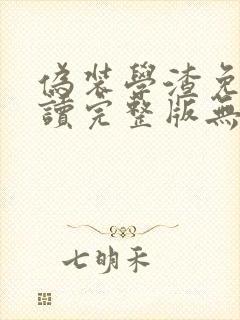 偽裝學渣免
讀完整版無
七明禾